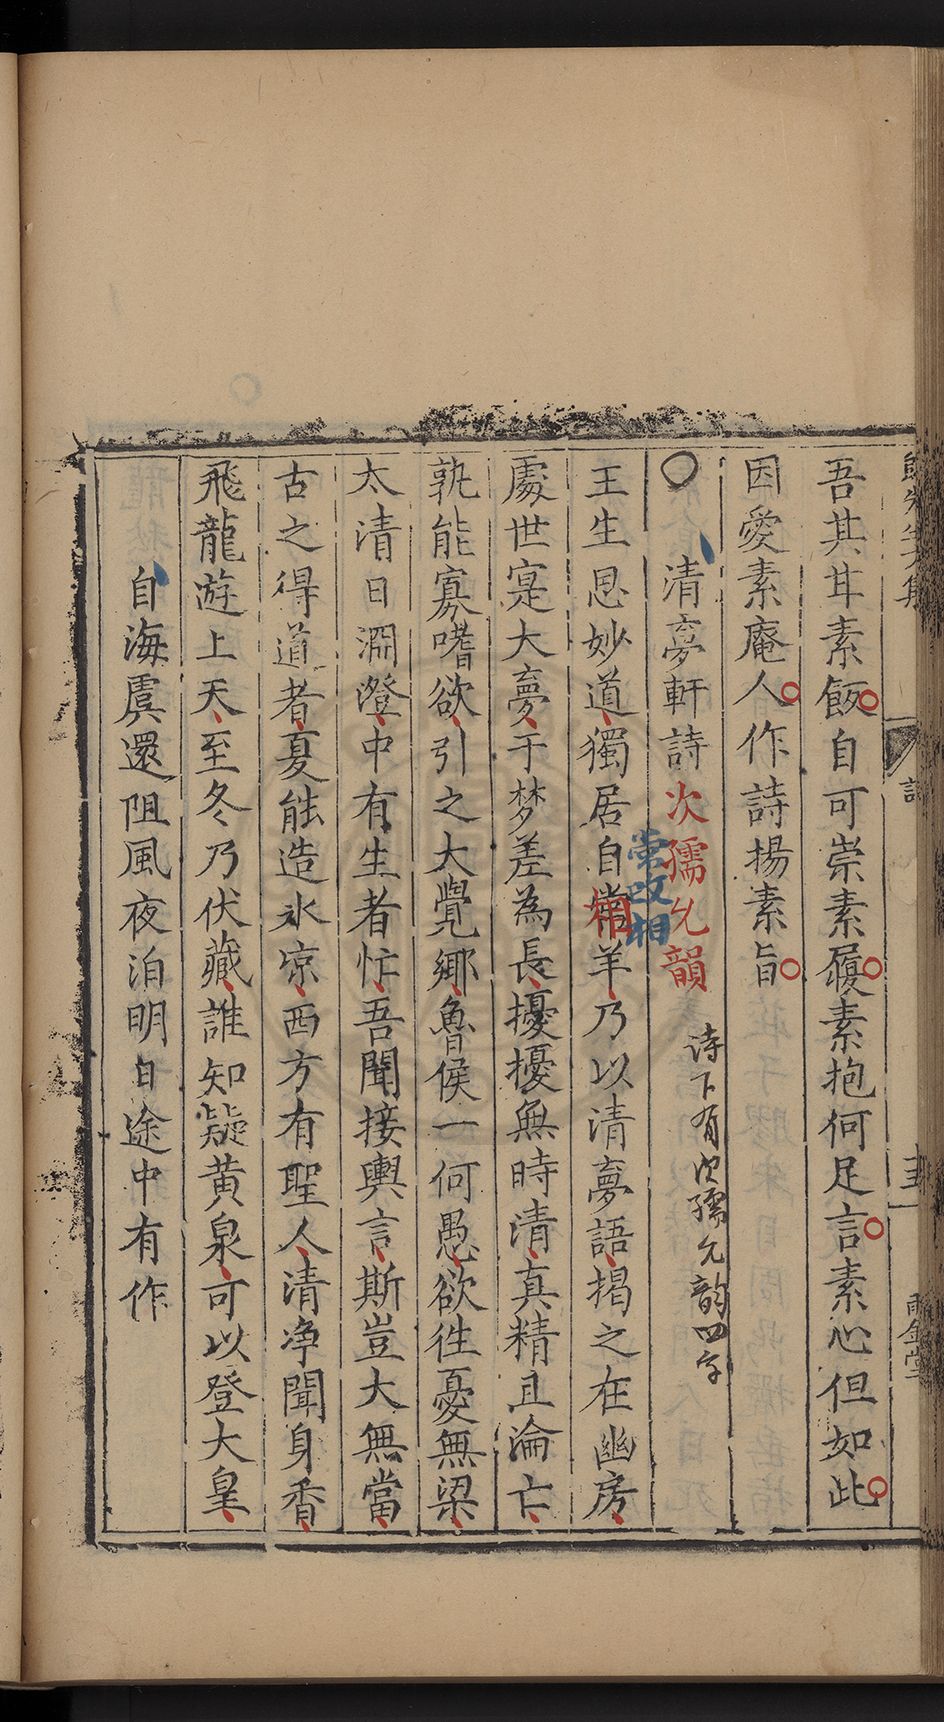 吾其甘素飯自可崇素履素抱何足言素心但如此
因愛素庵人作詩揚素旨
○
清夢軒詩
次孺允韻
詩下有次孺允韵四字
常改相
相
王生思妙道獨居自常羊乃以清夢語揭之在幽房
處世寔大夢于梦差為長擾擾無時清真精且淪亡
孰能寡嗜欲引之大覺郷魯侯一何愚欲徃憂無梁
太清日淵澄中有生者忙吾聞接輿言斯豈大無當
古之得道者夏能造氷凉西方有聖人清净聞身香
飛龍遊上天至冬乃伏藏誰知疑黄泉可以登大皇
自海虞還阻風夜泊明日途中有作